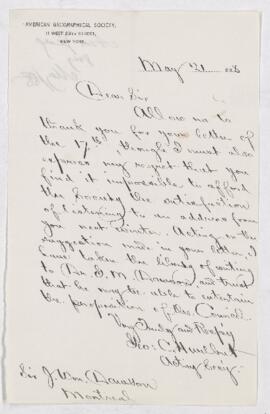 AMERICAN GEOGRAPHICAL SOCIETY,
11 WEST 29TH STREET,
NEW YORK.
May 21
Dear Sir
Allow me to
thank you for your letter of
the 17th, though I must also
express my regret that you
find it impossible to afford
the Society the satisfaction
of listening to an address from
you next winter. Acting on the
suggestion made in your letter, I
have taken the liberty of writing
to Dr. G. M. Dawson and trust
that he may be able to entertain
the proposition of the Council.
Very truly and Respy
Geo. C. Hurlbut
Acting Secy.
Sir J. Wm. Dawson
Montreal